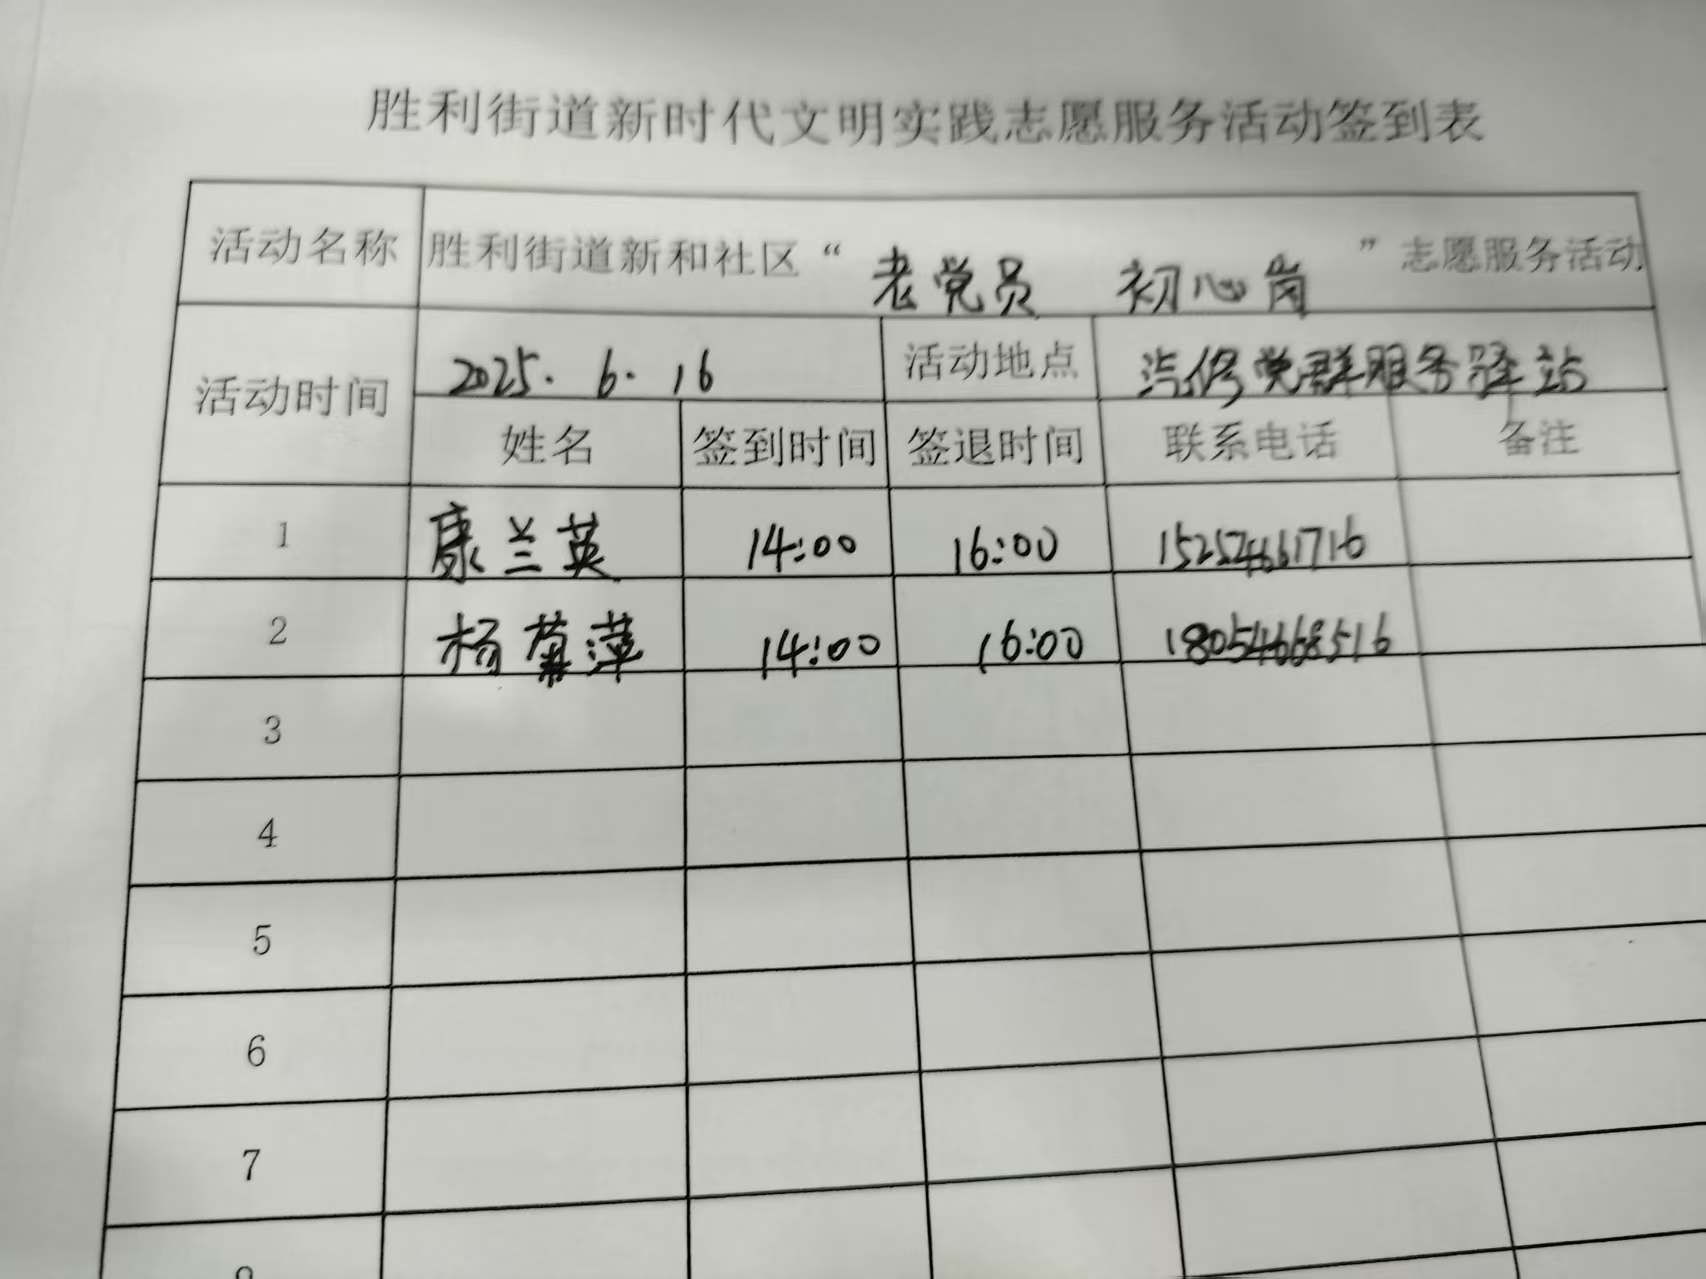 胜利街道新时代文明实践志愿服务活动签到表
活动名称 胜利街道新和社区“老党员 初心岗”志愿服务活动
活动时间 2025.6.16 活动地点 汽修党群服务驿站
姓名 签到时间 签退时间 联系电话 备注
1 康兰英 14:00 16:00 15254661716
2 杨菊萍 14:00 16:00 18054668516
3
4
5
6
7